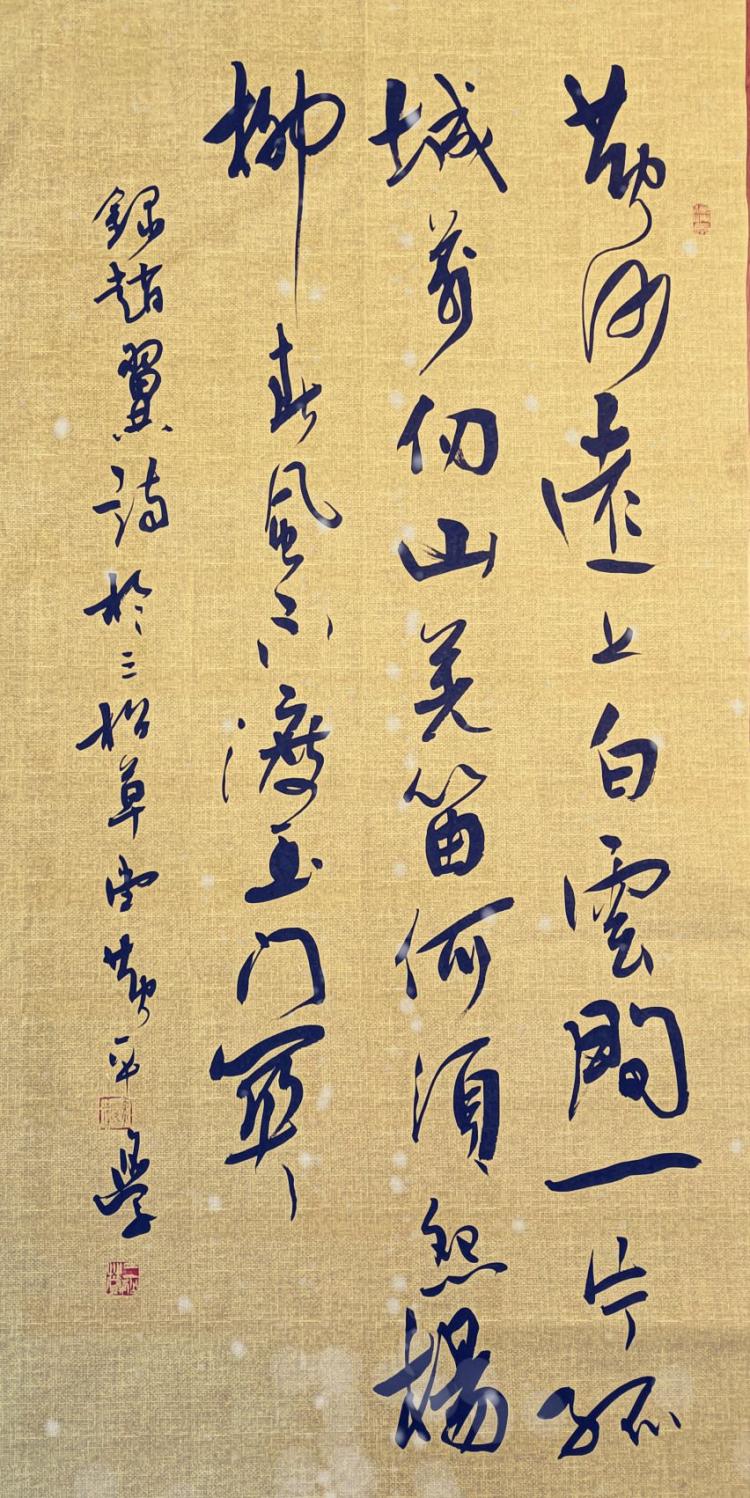 黄沙遠上白雲間一片孤
城萬仞山羌笛何須怨楊
柳春風不渡玉门關
錄趙翼詩於三松草堂黄平學